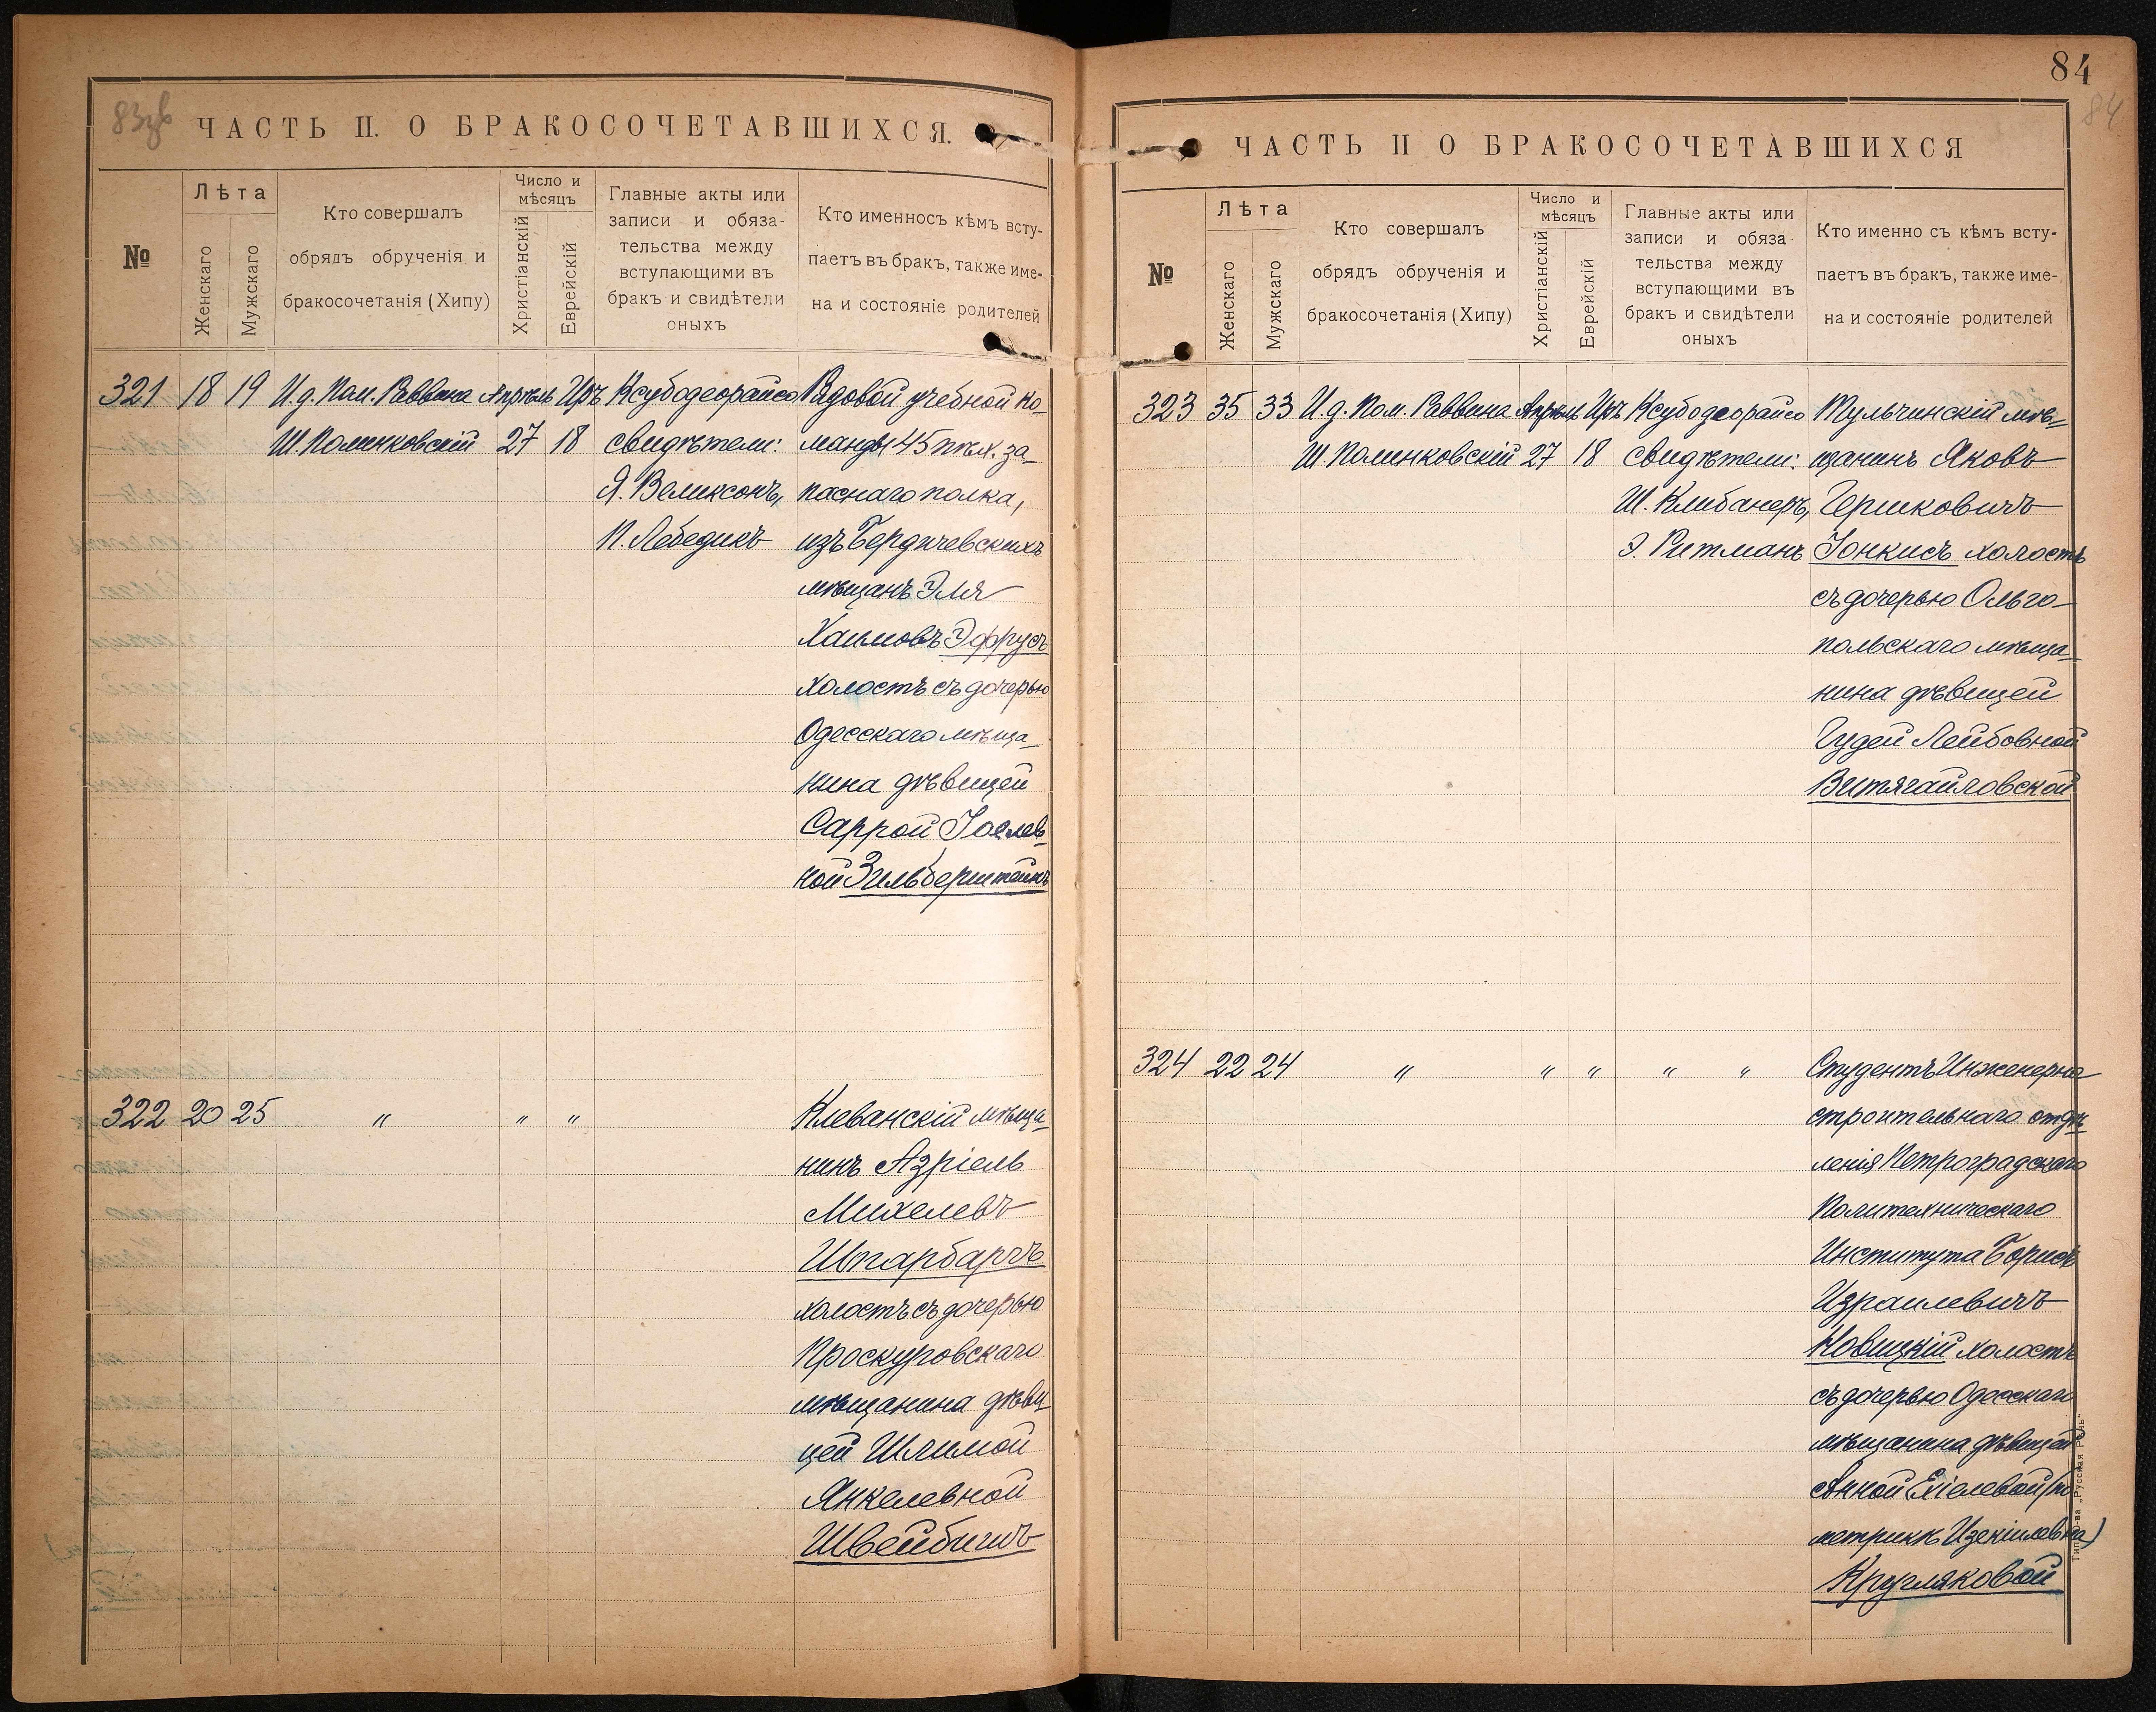 83зв
ЧАСТЬ II. О БРАКОСОЧЕТАВШИХСЯ.
№
Лѣта
Женскаго
Мужскаго
Кто совершалъ
обрядъ обрученія и
бракосочетанія (Хипу)
Число и
мѣсяцъ
Христіанскій
Еврейскій
Главные акты или
записи и обяза-
тельства между
вступающими въ
бракъ и свидѣтели
оныхъ
Кто именносъ кѣмъ всту-
паетъ въ бракъ, также име-
на и состояніе родителей
321 18 19 И.д. Пом. Раввина Апрѣль Иръ Ксубодеорайсо Рядовой учебной ко-
Ш. Полинковскій 27 18 свидѣтели: манды 45 пѣх. за-
Я. Великсонъ, паснаго полка,
П. Лебедикъ изъ Бердичевскихъ
мѣщанъ Эля
Хаимовъ Эфрусъ
холостъ съ дочерью
Одесскаго мѣща-
нина дѣвицей
Саррой Іослев-
ной Зильберштейнъ
322 20 25 " " " Клеванскій мѣща-
нинъ Азріель
Михелевъ
Шпарбаргъ
холостъ съ дочерью
Проскуровскаго
мѣщанина дѣви-
цей Шлимой
Янкелевной
Швейбишъ
84
84
ЧАСТЬ II О БРАКОСОЧЕТАВШИХСЯ
№
Лѣта
Женскаго
Мужскаго
Кто совершалъ
обрядъ обрученія и
бракосочетанія (Хипу)
Число и
мѣсяцъ
Христіанскій
Еврейскій
Главные акты или
записи и обяза
тельства между
вступающими въ
бракъ и свидѣтели
оныхъ
Кто именно съ кѣмъ всту-
паетъ въ бракъ, также име-
на и состояніе родителей
323 35 33 И.д. Пом. Раввина Апрѣль Иръ Ксубодеорайсо Тульчинскій мѣ-
Ш. Полинковскій 27 18 свидѣтели: щанинъ Яковъ
Ш. Клибанеръ, Гершковичъ
Э. Ритманъ Іонкисъ холостъ
съ дочерью Ольго-
польскаго мѣща-
нина дѣвицей
Гудей Лейбовной
Витягайловской
324 22 24 " " " " " Студентъ Инженерно
строительнаго отдѣ
ленія Петроградскаго
Политехническаго
Института Борисъ
Израилевичъ
Новицкій холостъ
съ дочерью Одесскаго
мѣщанина дѣвицей
Анной Ехіелевой (по
метрикѣ Изекіилевна)
Кругляковой
Тип. Т-ва „Русская Рѣчь"